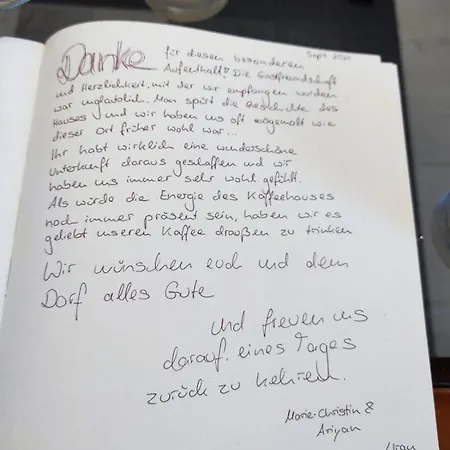 Sept. 2021
Danke für diesen besonderen
Aufenthalt!! Die Gastfreundschaft
und Herzlichkeit, mit der wir empfangen wurden
war unglaublich. Man spürt die Geschichte des
Hauses und wir haben uns oft ausgemalt wie
dieser Ort früher wohl war...
Ihr habt wirklich eine wunderschöne
Unterkunft daraus geschaffen und wir
haben uns immer sehr wohl gefühlt.
Als würde die Energie des Kaffeehauses
noch immer präsent sein, haben wir es
geliebt unseren Kaffee draußen zu trinken
Wir wünschen euch und dem
Dorf alles Gute
und freuen uns
darauf eines Tages
zurück zu kehren.
Marie-Christin &
Ariyan